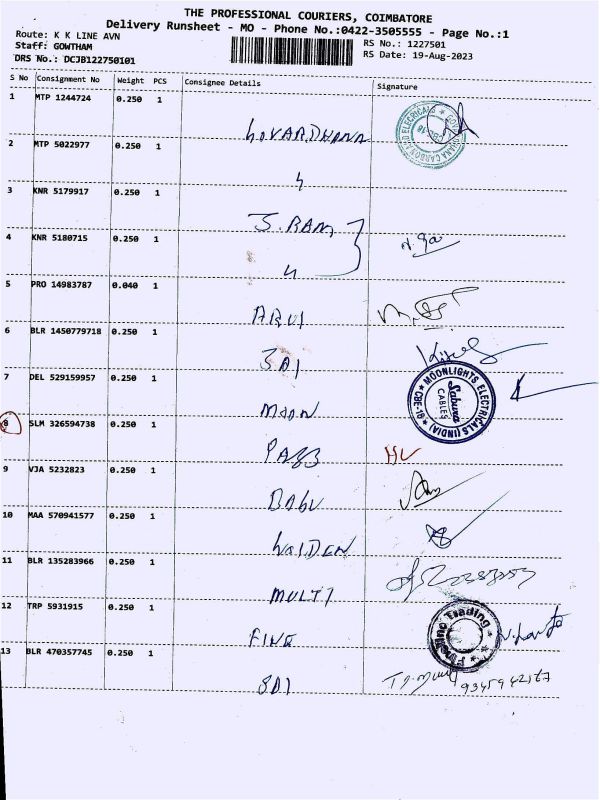 THE PROFESSIONAL COURIERS, COIMBATORE
Delivery Runsheet - MO - Phone No.:0422-3505555 - Page No.:1
Route: K K LINE AVN
RS No.: 1227501
Staff: GOWTHAM
RS Date: 19-Aug-2023
DRS No.: DCJB122750101
S No Consignment No Weight PCS Consignee Details Signature
1 MTP 1244724 0.250 1
GOVARDHANA
2 MTP 5022977 0.250 1
3 KNR 5179917 0.250 1
J.RAM
4 KNR 5180715 0.250 1
5 PRO 14983787 0.040 1
ARUL
6 BLR 1450779718 0.250 1
SAI
7 DEL 529159957 0.250 1
MOON
MOONLIGHTS ELECTRICALS (INDIA)
CBE-18
Sabura
CABLES
8 SLM 326594738 0.250 1
9 VJA 5232823 0.250 1
BABU
10 MAA 570941577 0.250 1
GOLDEN
11 BLR 135283966 0.250 1
MULTI
12 TRP 5931915 0.250 1
FINE
Trading
13 BLR 470357745 0.250 1
SAI